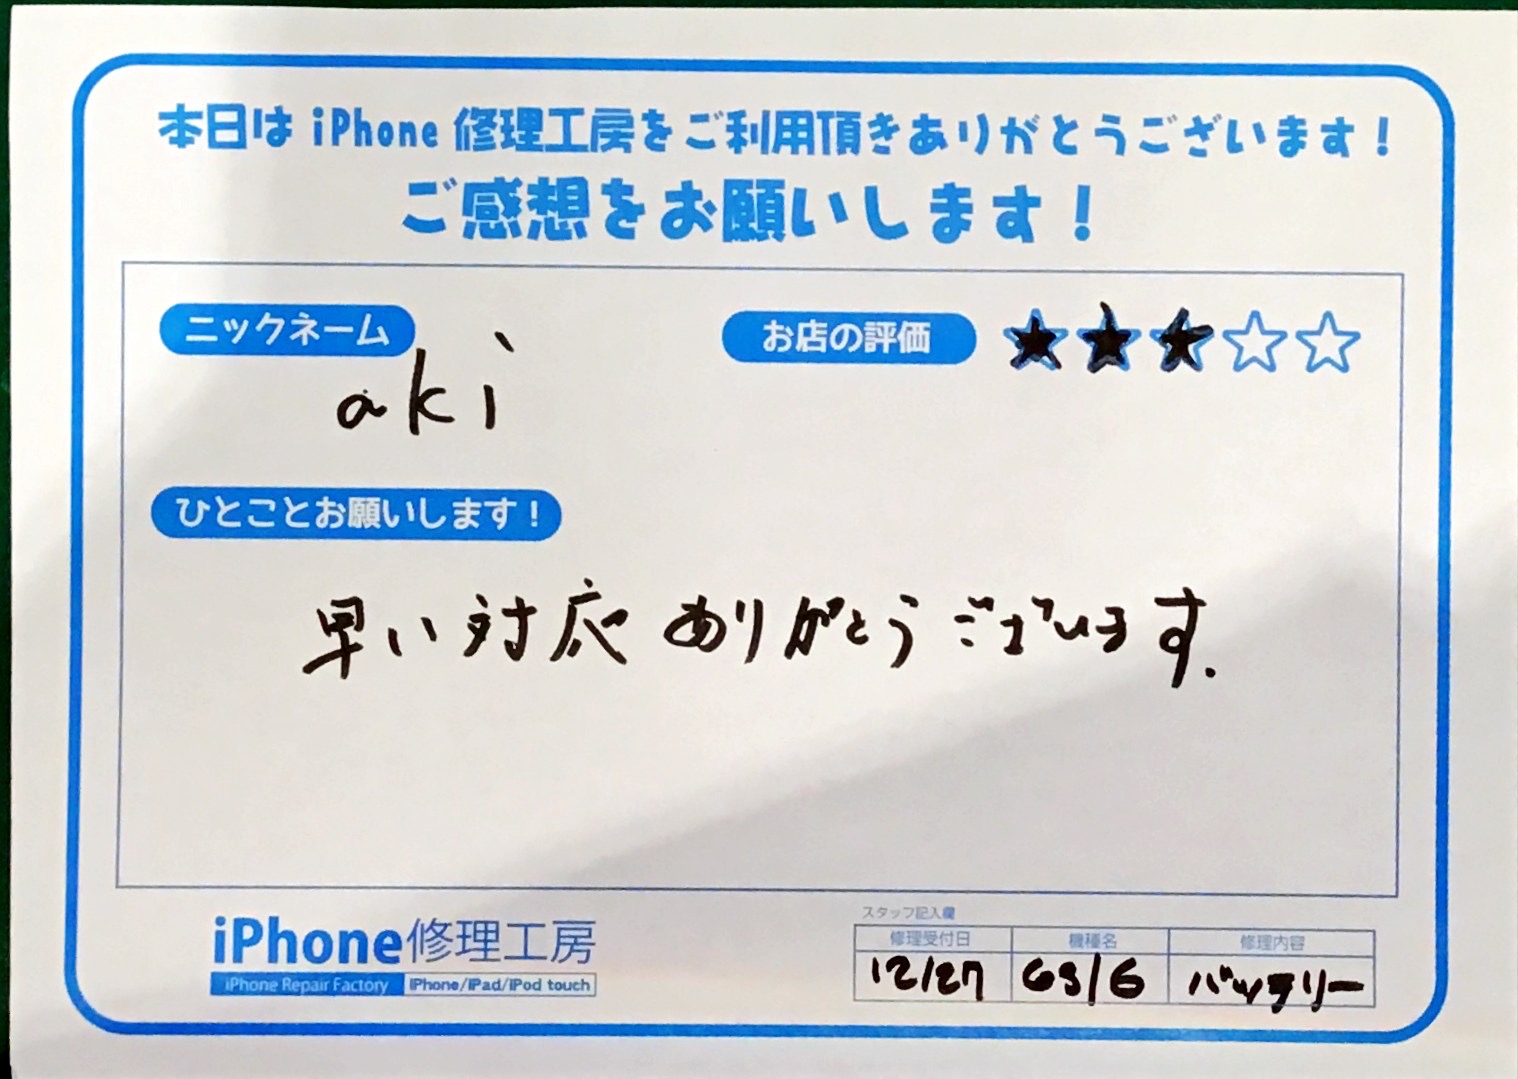 本日は iPhone 修理工房をご利用頂きありがとうございます！
ご感想をお願いします！
ニックネーム
お店の評価 ★★★☆☆
aki
ひとことお願いします！
早い対応ありがとうございます.
スタッフ記入欄
修理受付日 機種名 修理内容
12/27 6S/6 バッテリー
iPhone修理工房
iPhone Repair Factory iPhone/iPad/iPod touch